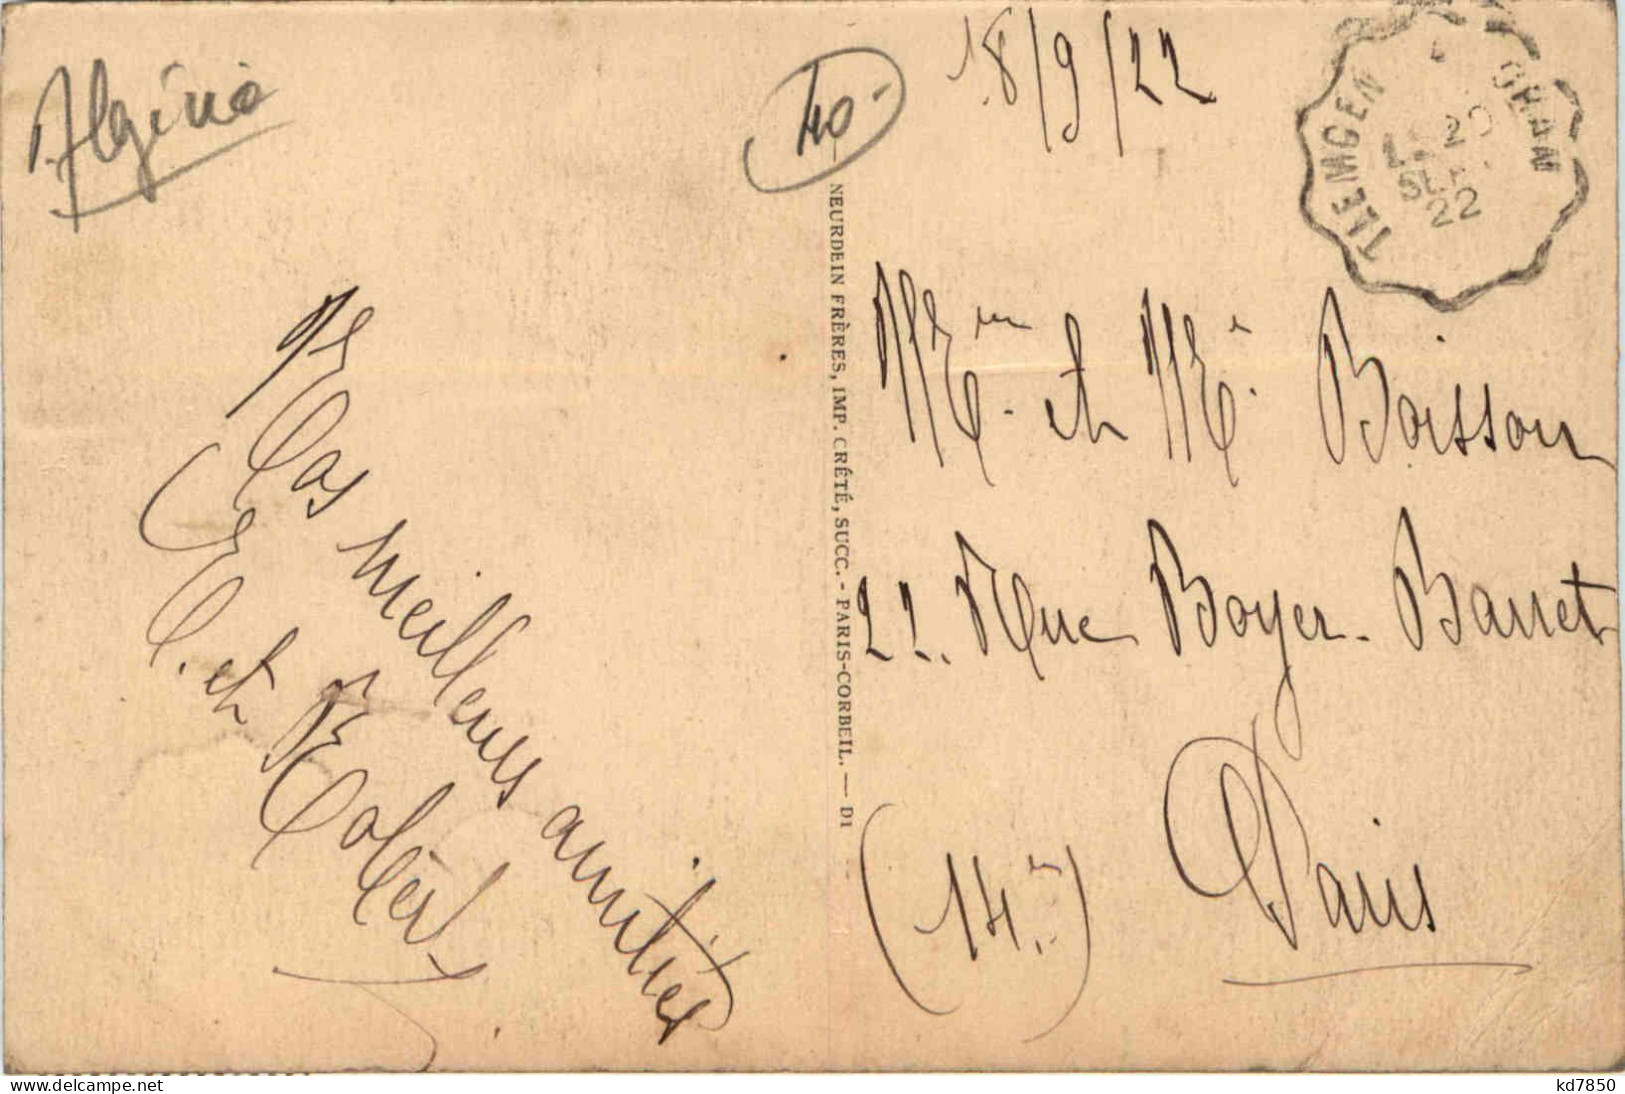 Algérie
40-
18/9/22
TLEMCEN
ORAN
20
SEPT
22
Nos meilleures amitiés
C. et Robert
NEURDEIN FRÈRES, IMP. CRÉTÉ, SUCC. - PARIS-CORBEIL. — D1
Mr et Me Boisson
22. Rue Boyer-Barret
(14e) Paris
kd7850